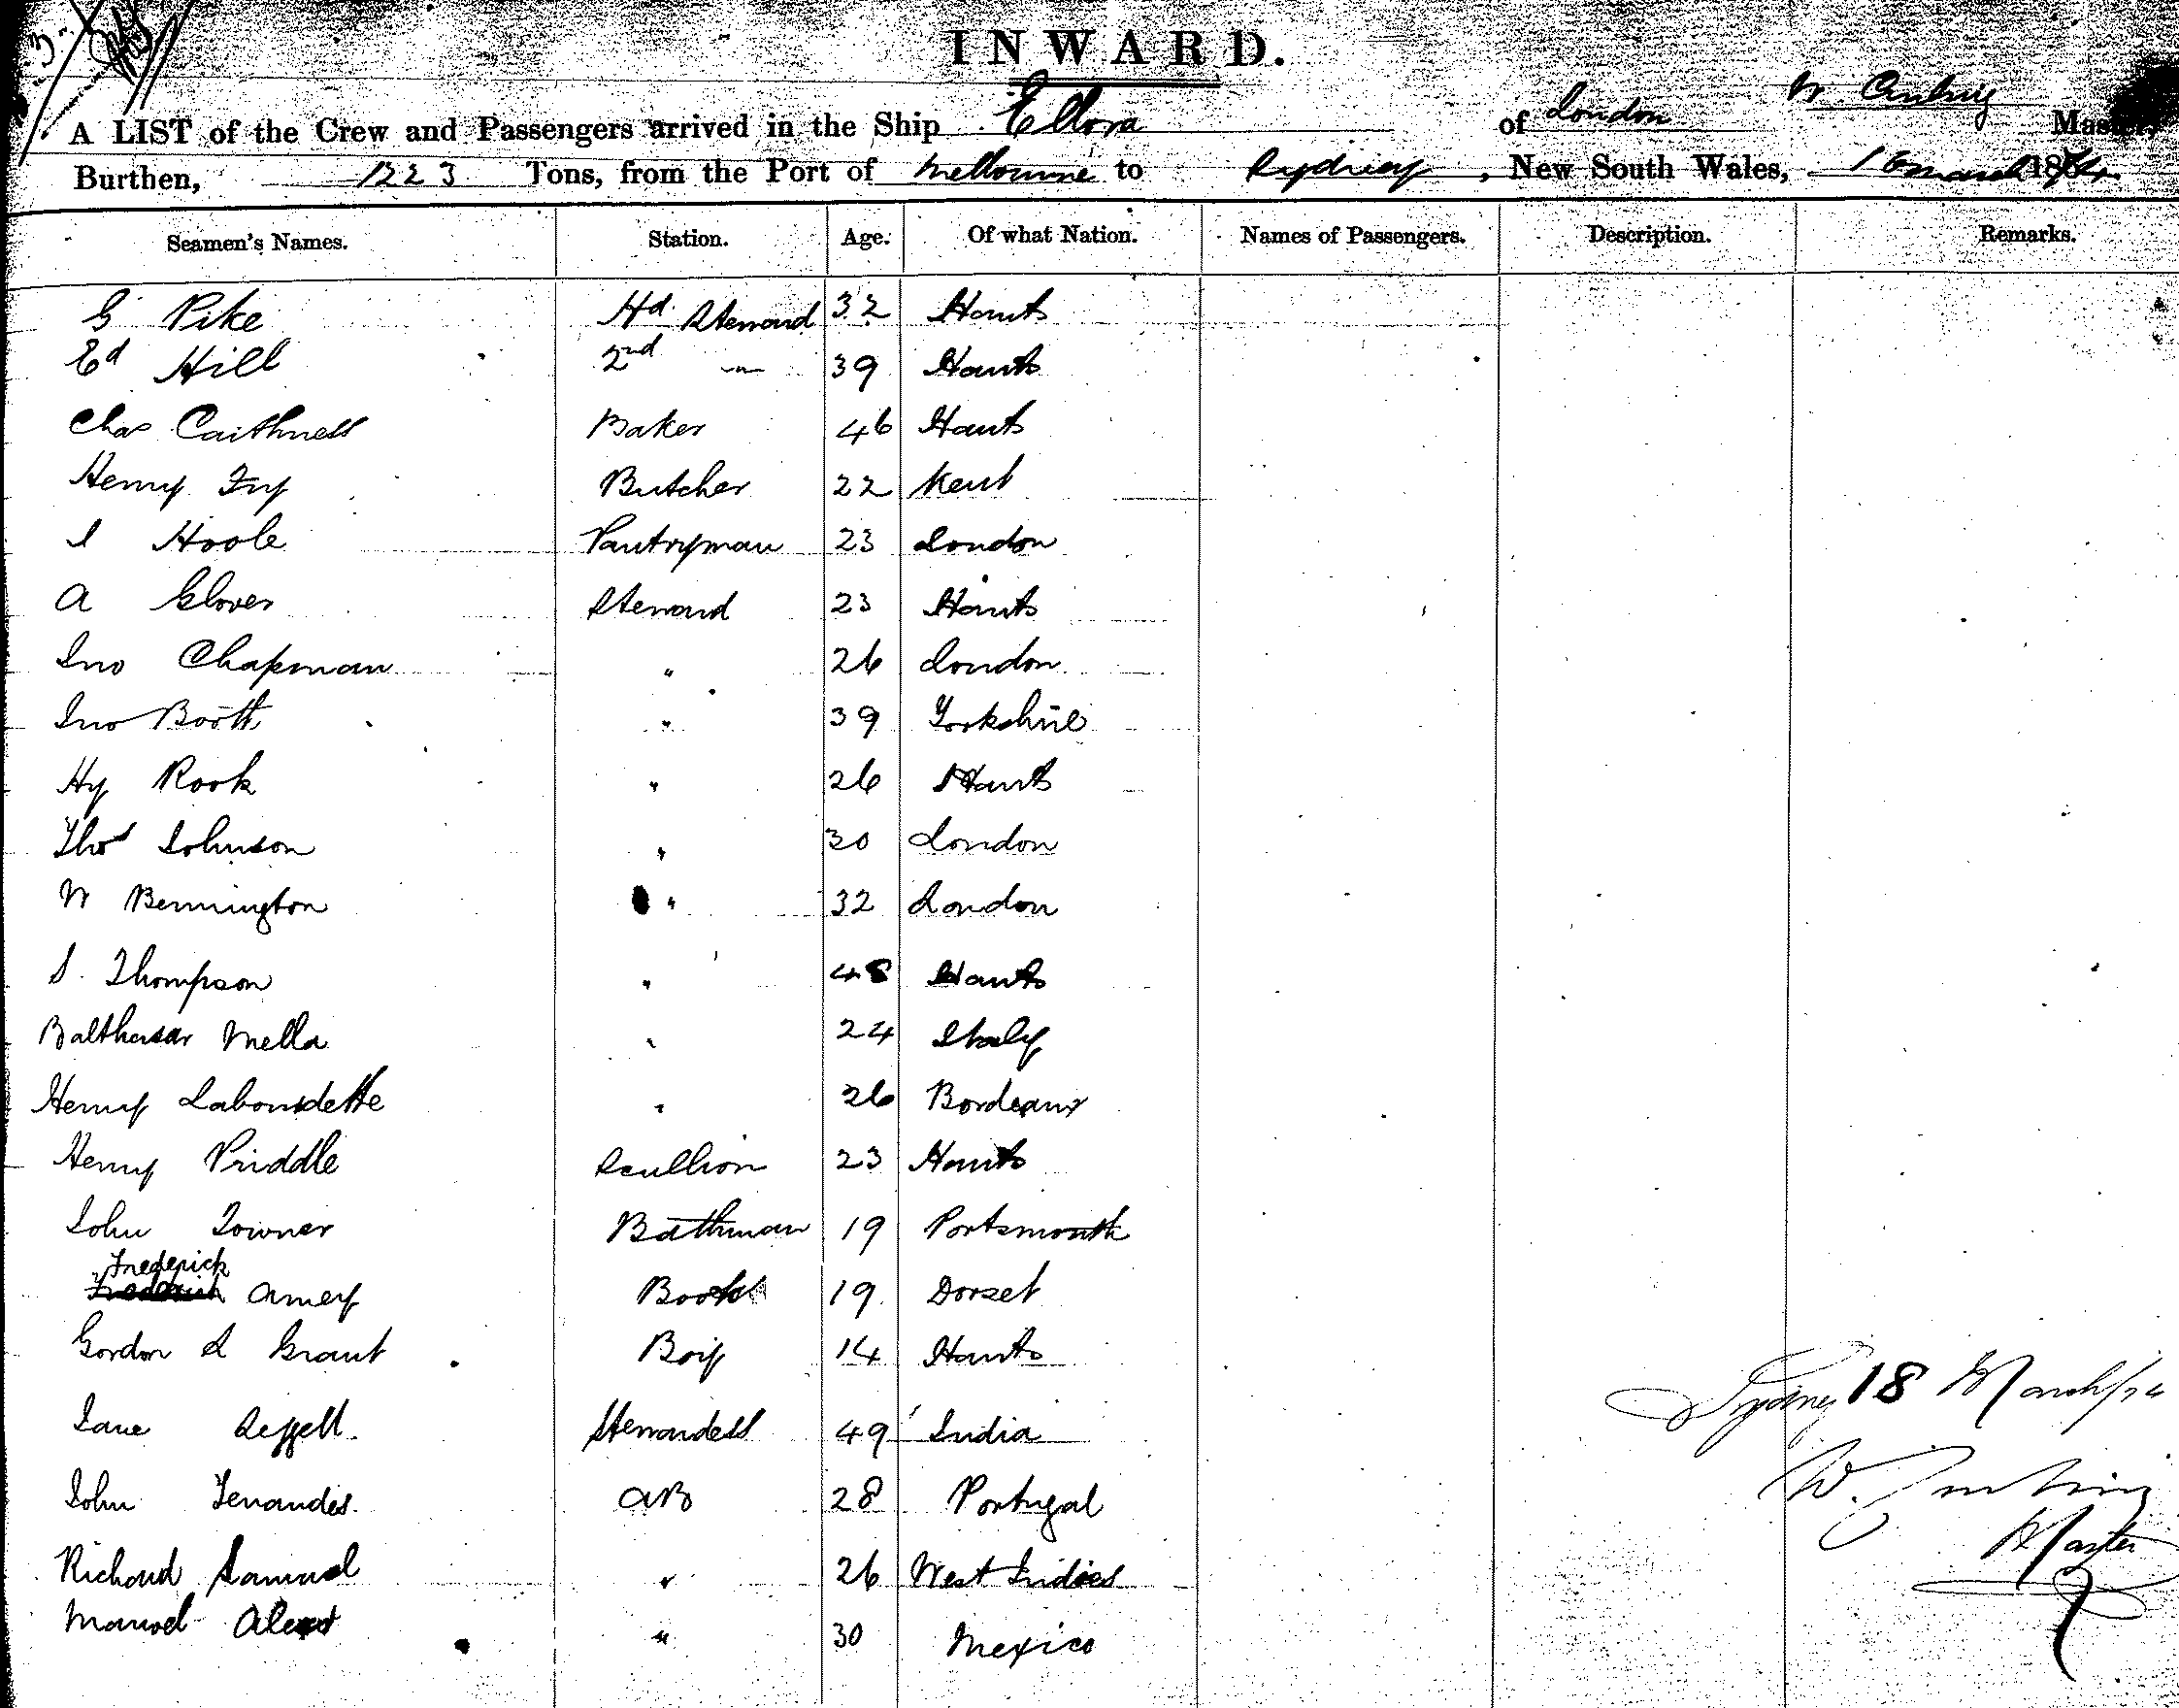 INWARD.
A LIST of the Crew and Passengers arrived in the Ship Ellora of London Master,
Burthen, 1223 Tons, from the Port of Melbourne to Sydney, New South Wales, 16 March 187
Seamen's Names. Station. Age. Of what Nation. Names of Passengers. Description. Remarks.
G Pike Hd. Steward 32 Hants
Ed Hill 2nd -"- 39 Hants
Chas Caithness Baker 46 Hants
Henry Fry Butcher 22 Kent
I Hoole Pantryman 23 London
A Glover Steward 23 Hants
Jno Chapman " 26 London
Jno Booth " 39 Yorkshire
Hy Rook " 26 Hants
Thos Johnson " 30 London
W Bennington " 32 London
S. Thompson " 48 Hants
Balthasar Mella " 24 Italy
Henry Labousdette " 26 Bordeaux
Henry Priddle Scullion 23 Hants
John Towner Bathman 19 Portsmouth
Frederick
Frederick Amey Boots 19 Dorset
Gordon S Grant Boy 14 Hants
Jane Stewardess 49 India
John Fenandes AB 28 Portugal
Richard Samuel " 26 West Indies
Manuel " 30 Mexico
Sydney 18 March/74
W.
Master